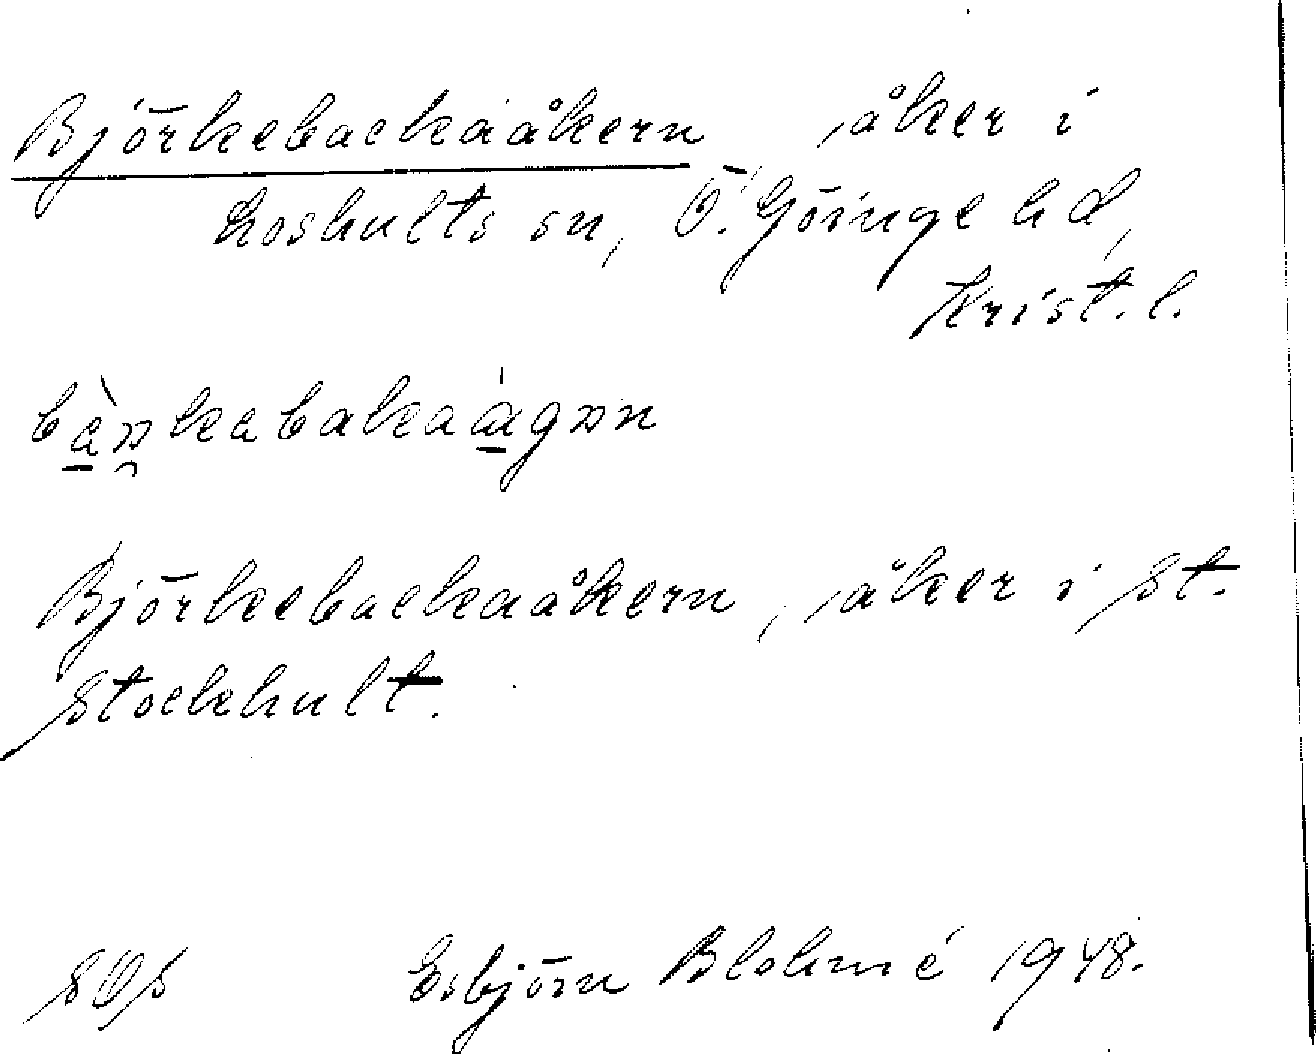 Björkebackaåkern, åker i
Loshults sn, Ö. Göinge hd,
Krist. l.
Björkebackaåkern, åker i St.
Stockhult.
Esbjörn Blohmé 1948.